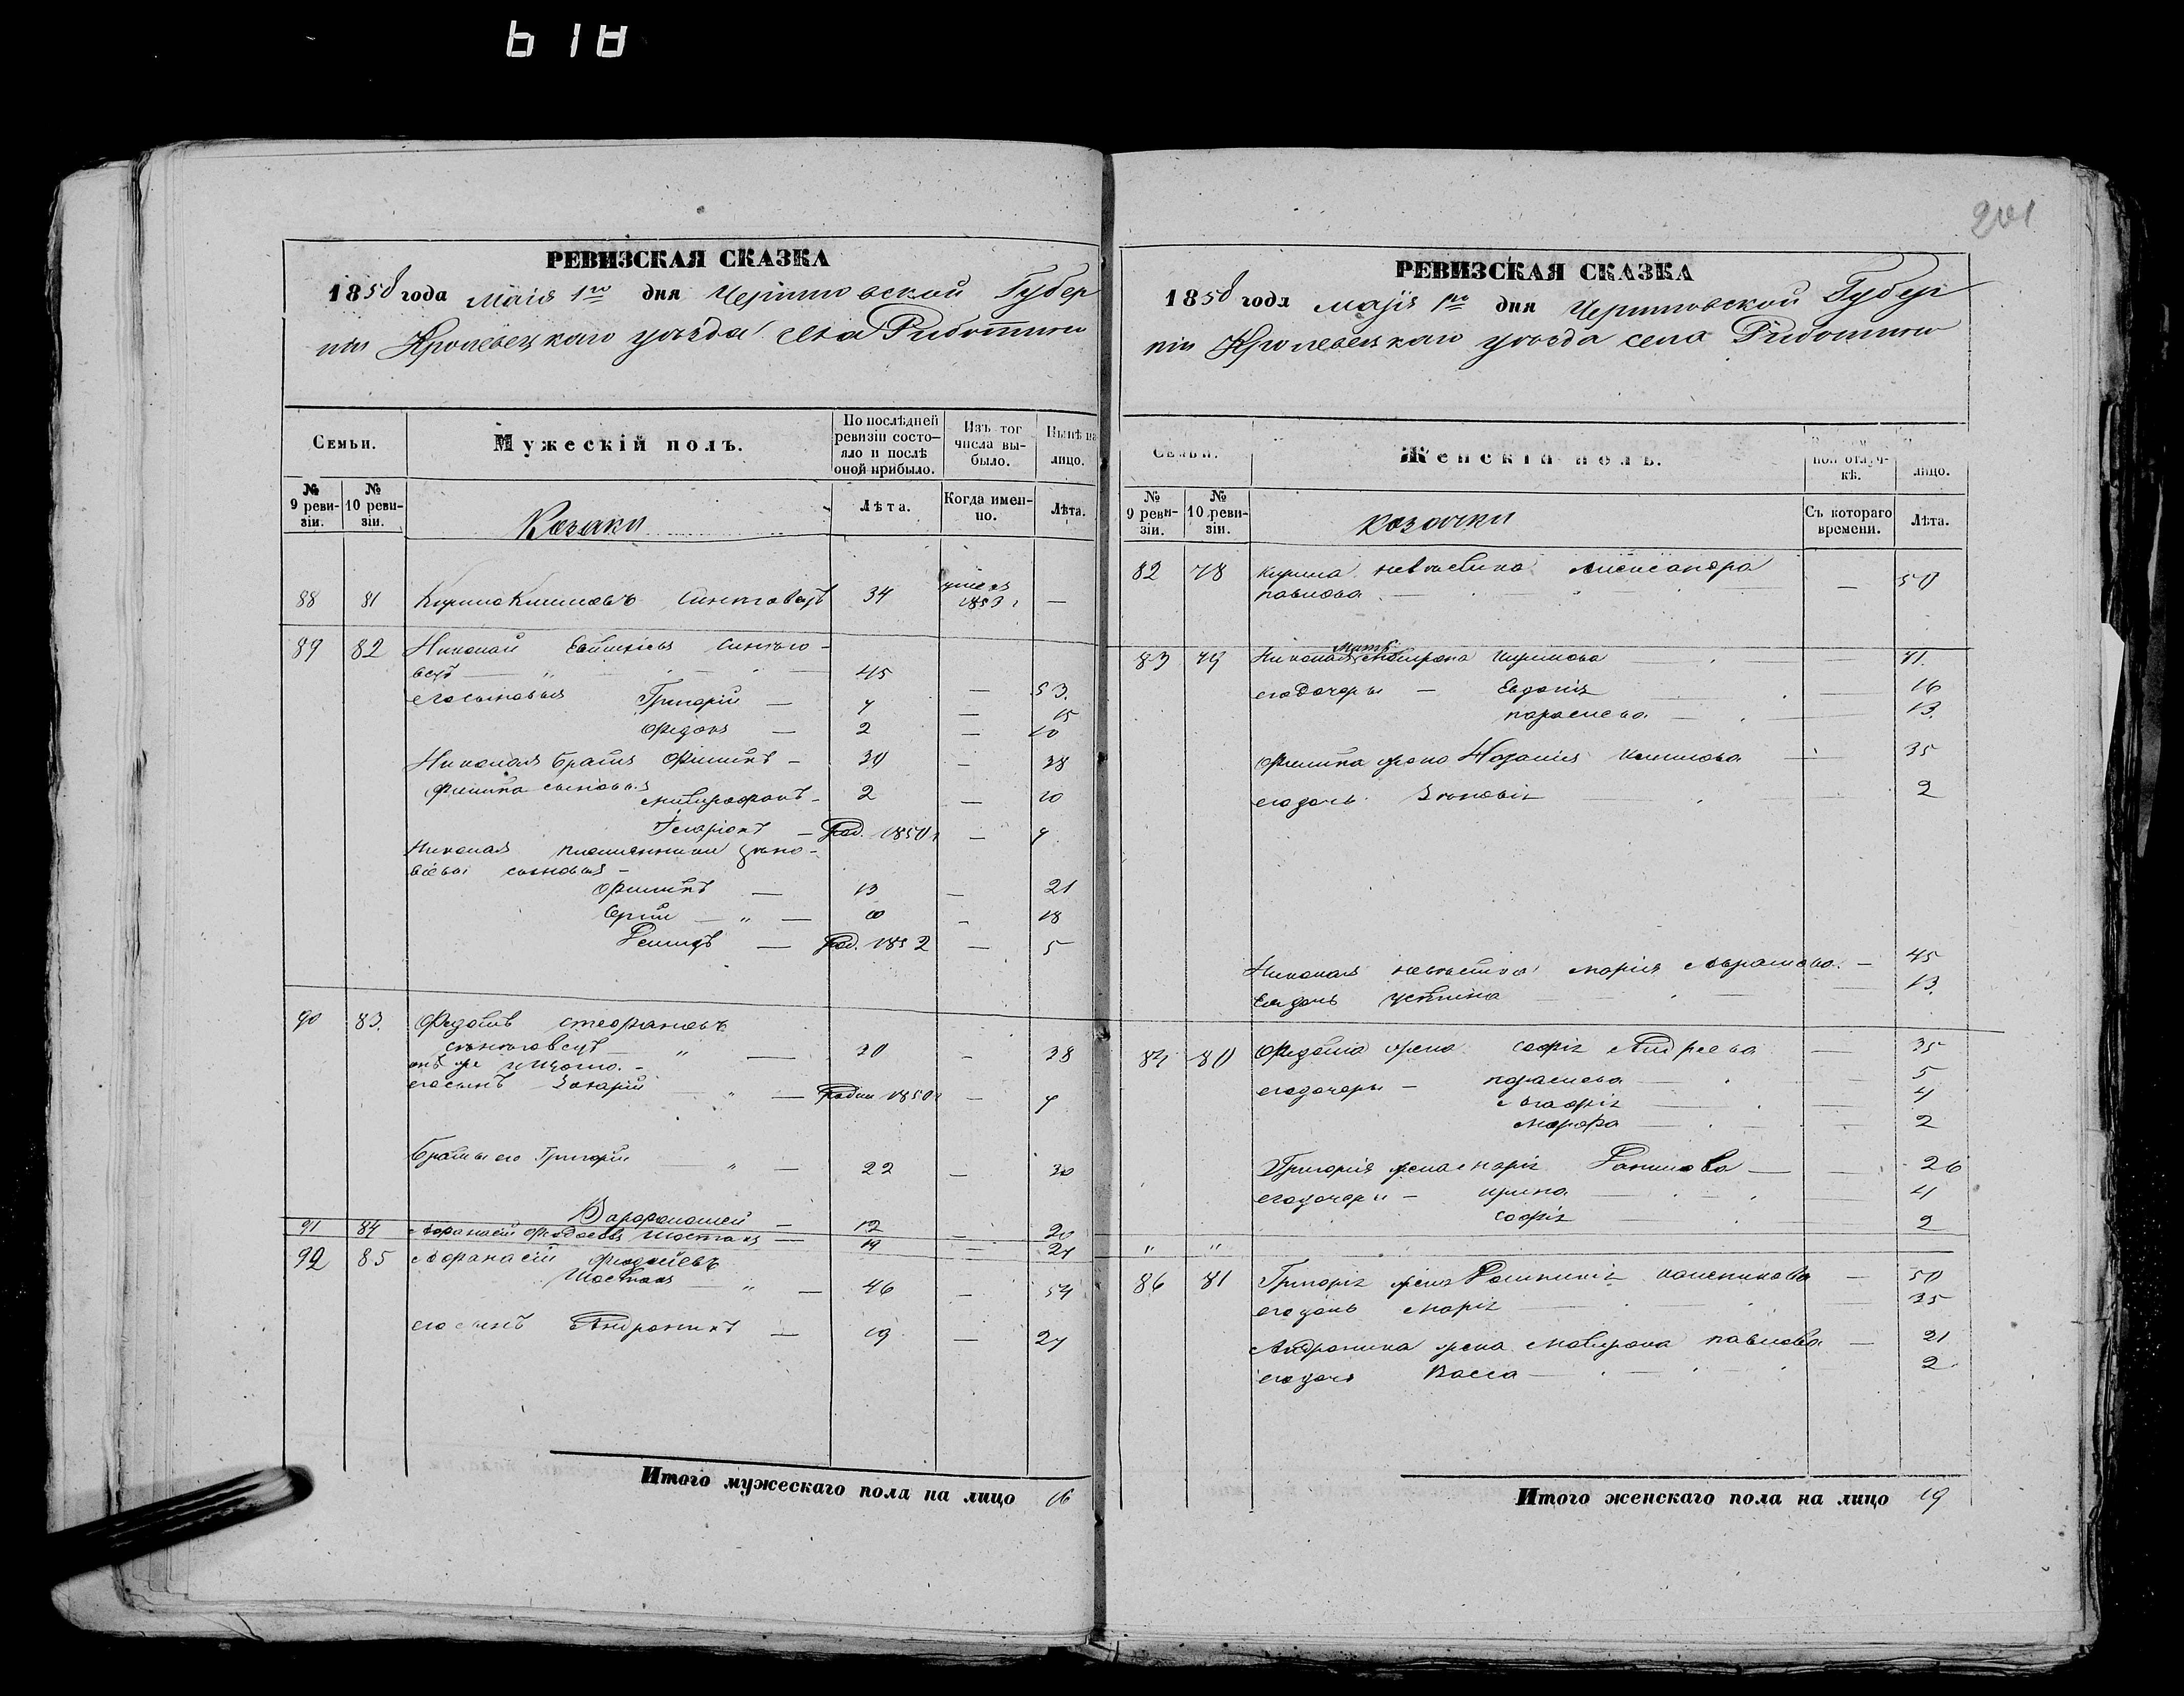 618
201
РЕВИЗСКАЯ СКАЗКА
1858 года Маія 1го дня Черниговской Губер
ніи Кролевецкаго уѣзда села Риботина
Семьи.
Мужескій полъ.
По послѣдней ревизіи состо-
яло и послѣ
оной прибыло.
Изъ тог
числа вы-
было.
Нынѣ на
лицо.
№ 9 реви-
зіи.
№ 10 реви-
зіи.
Козаки
Лѣта.
Когда имен-
но.
Лѣта.
88 81 34 умеръ 1853 г —
89 82 Николай
45 — 53.
его сыновья Григорій — 7 — 15
Федоръ — 2 — 10
Николая братъ Филипъ — 30 — 38
Филипа сыновья
Митрофанъ — 2 — 10
Іларіонъ — Род. 1850 г — 7
Николая племянники
сыновья —
Филипъ — 13 — 21
Сергій — " — 10 — 18
Демидъ — Род. 1852 — 5
90 83. Федотъ Стефановъ
— " — 30 — 38
онъ же
его сынъ Захарій — " — Родил 1850 г — 7
Братья его Григорій — " — 22 — 30
Варфоломей — 12 — 20
91 84 Афанасій Шостакъ — 19 — 27
92 85 Афанасій
Шостакъ — " — 46 — 54
его сынъ Андроникъ — 19 — 27
Итого мужескаго пола на лицо 16
РЕВИЗСКАЯ СКАЗКА
1858 года маіія 1го дня Черниговской Губер
ніи Кролевецкаго уѣзда села Риботина
Семьи.
Женскій полъ.
ной отлуч-
кѣ.
лицо.
№ 9 реви-
зіи.
№ 10 реви-
зіи.
козачки
Съ котораго
времени.
Лѣта.
82 78 Кирила невѣстка Александра
павлова — — 50
83 79 Николая мать Кирилова — — 71.
его дочери — Евдокія — 16
параскева — — 13.
Филипа жена — 35
его дочь Зѣновія — — 2
Николая невѣстка Марія Аврамова. — 45
Ея дочь устина — — 13.
84 80 Федота жена Софія Андреева — 35
его дочери — параскева — — 5
Агафія — — 4
Марфа — — 2
Григорія жена Марія Данилова — — 26
его дочери — ирина — — 4
Софія — 2
" "
86 81 Григорія жена — 50
его дочь Марія — 35
Андроника жена павлова — 21
его дочь Васса — 2
Итого женскаго пола на лицо 19